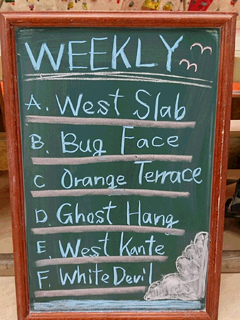 WEEKLY
A. West Slab
B. Bug Face
C Orange Terrace
D Ghost Hang
E. West Kante
F. White Devil